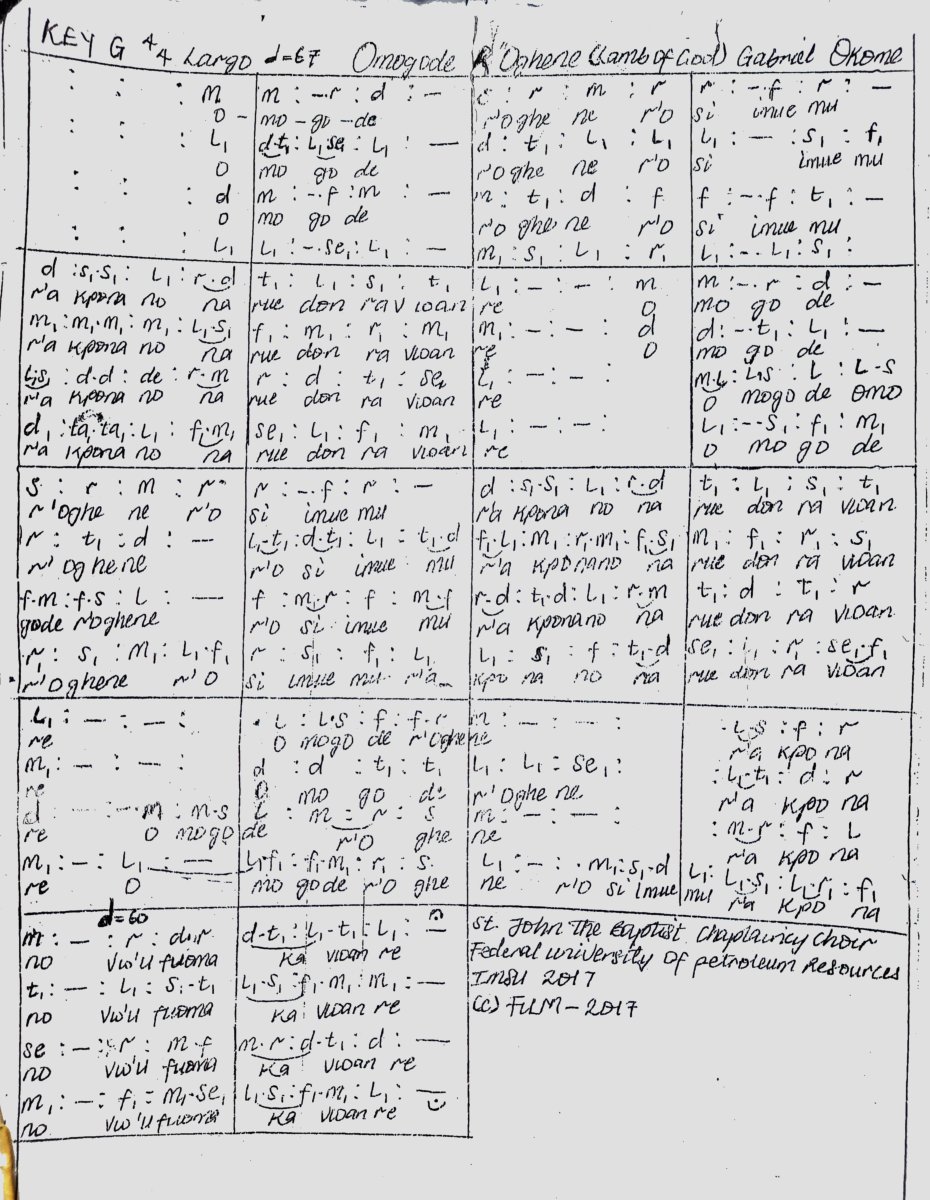 KEY G 4/4 Largo d=67 Omogode R'Oghene (Lamb of God) Gabriel Okome
: : : m | m : -.r : d : — | : r : m : r | r : -.f : r : —
O - mo - go - de r'oghe ne r'O si imue mu
: : : L₁ | d.t₁ : L₁.se₁ : L₁ : — | d : t₁ : L₁ : L₁ | L₁ : — : s₁ : f₁
O mo go de r'oghe ne r'O si imue mu
: : : d | m : -.f : m : — | m : t₁ : d : f | f : -.f : t₁ : —
O mo go de r'o ghe ne r'O si imue mu
: : : L₁ | L₁ : -.se₁ : L₁ : — | m₁ : s₁ : L₁ : r₁ | L₁ : -.L₁ : s₁ :
d : s₁.s₁ : L₁ : r.d | t₁ : L₁ : s₁ : t₁ | L₁ : — : — : m | m : -.r : d : —
r'a kpona no na rue don ra v woan re O mo go de
m₁ : m₁.m₁ : m₁ : L₁.s₁ | f₁ : m₁ : r₁ : m₁ | m₁ : — : — : d | d : -.t₁ : L₁ : —
r'a kpona no na rue don ra vwoan re O mo go de
L.s₁ : d.d : de : r.m | r : d : t₁ : se₁ | L₁ : — : — : | m.L : L.s : L : L.s
r'a kpona no na rue don ra vwoan re O mogo de omo
d₁ : ta₁.ta₁ : L₁ : f₁.m₁ | se₁ : L₁ : f₁ : m₁ | L₁ : — : — : | L₁ : -.s₁ : f₁ : m₁
r'a kpona no na rue don ra vwoan re O mo go de
s : r : m : r | r : -.f : r : — | d : s₁.s₁ : L₁ : r.d | t₁ : L₁ : s₁ : t₁
r'oghe ne r'O si imue mu r'a kpona no na rue don ra vwoan
r : t₁ : d : — | L₁.t₁ : d.t₁ : L₁ : t₁.d | f₁.L₁ : m₁ : r₁.m₁ : f₁.s₁ | m₁ : f₁ : r₁ : s₁
r'oghene r'O si imue mu r'a kponano na rue don ra vwoan
f.m : f.s : L : — | f : m.r : f : m.f | r.d : t₁.d : L₁ : r.m | t₁ : d : t₁ : r
gode r'oghene r'O si imue mu r'a kponano na rue don ra vwoan
r₁ : s₁ : m₁ : L₁.f₁ | r : s₁ : f₁ : L₁ | L₁ : s₁ : f : t₁.d | se₁ : L₁ : r : se₁.f₁
r'Oghene r'O si imue mu r'a kpo na no na rue don ra vwoan
L₁ : — : — : | . L : L.s : f : f.r | m : — : — : | . L.s : f : r
re O mogo de r'Oghene r'a kpo na
m₁ : — : — : | d : d : t₁ : t₁ | L₁ : L₁ : se₁ : | : L₁.t₁ : d : r
re O mo go de r'oghe ne r'a kpo na
d : — : m : m.s | L : m : r : s | m : — : — : | : m.r : f : L
re O mogo de r'O ghe ne r'a kpo na
m₁ : — : L₁ : — | L₁.f₁ : f₁.m₁ : r₁ : s | L₁ : — : . m₁ : s₁.d | L₁ : L₁.s₁ : L₁.r₁ : f₁
re O mo gode r'O ghe ne r'O si imue mu r'a kpo na
d=60
m : — : r : d.r | d.t₁ : L₁.t₁ : L₁ : —
no vw'u fuoma ka vwoan re
t₁ : — : L₁ : s₁.t₁ | L₁.s₁ : f₁.m₁ : m₁ : —
no vw'u fuoma ka vwoan re
se : — : r : m.f | m.r : d.t₁ : d : —
no vw'u fuoma ka vwoan re
m₁ : — : f₁ : m₁.se₁ | L₁.s₁ : f₁.m₁ : L₁ : —
no vw'u fuoma ka vwoan re
St. John The Baptist Chaplaincy Choir
Federal university of petroleum Resources
IMSU 2017
(c) FULM - 2017